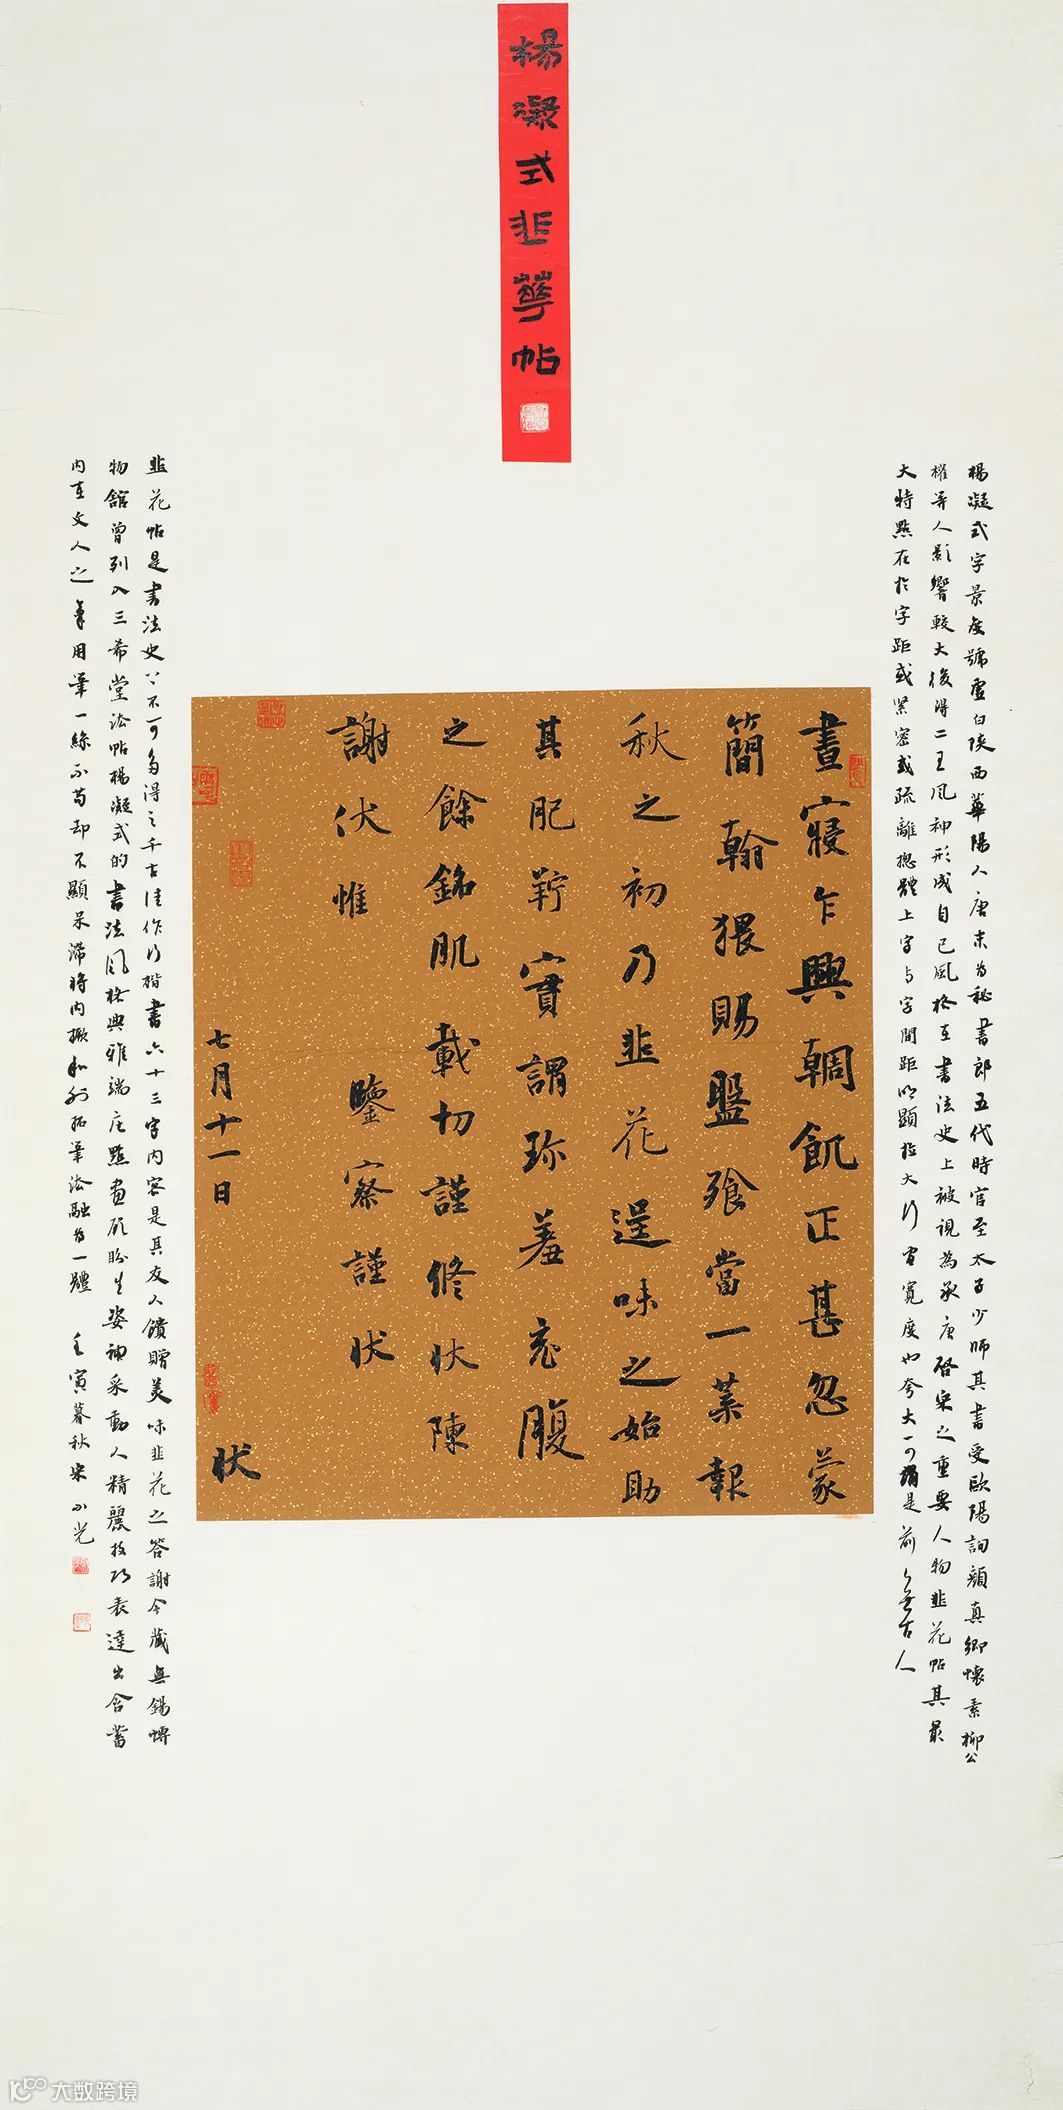 楊凝式韭華帖
楊凝式字景度號虛白陝西華陽人唐末為秘書郎五代時官至太子少師其書受歐陽詢顏真卿懷素柳公
權等人影響較大後得二王風神形成自己風格在書法史上被視為承唐啓宋之重要人物韭花帖其最
大特點在於字距或緊密或疏離總體上字与字間距明顯拉大行間寬度也夸大一可謂是前無古人
晝寢乍興輖飢正甚忽蒙
簡翰猥賜盤飧當一葉報
秋之初乃韭花逞味之始助
其肥羜實謂珎羞充腹
之餘銘肌載切謹修狀陳
謝伏惟
鑒察謹狀
七月十一日
狀
韭花帖是書法史上不可多得之千古佳作行楷書六十三字内容是其友人饋贈美味韭花之答謝今藏無錫博
物館曾列入三希堂法帖楊凝式的書法風格典雅端庄點畫顧盼生姿神采動人精麗技巧表達出含蓄
内在文人之氣用筆一絲不苟却不顯呆滯將内擫和外拓筆法融為一體
壬寅暮秋宋小光
大数跨境